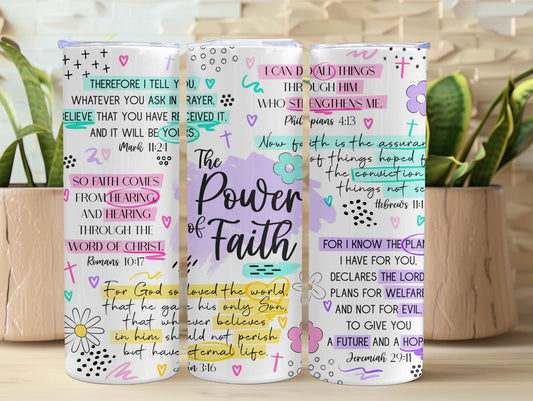 THEREFORE I TELL YOU,
WHATEVER YOU ASK IN PRAYER,
BELIEVE THAT YOU HAVE RECEIVED IT,
AND IT WILL BE YOURS.
Mark 11:24
SO FAITH COMES
FROM HEARING
AND HEARING
THROUGH THE
WORD OF CHRIST.
Romans 10:17
The
Power
of
Faith
For God so loved the world
that he gave his only Son,
that whoever believes
in him should not perish
but have eternal life.
3:16
I CAN DO ALL THINGS
THROUGH HIM
WHO STRENGTHENS ME.
Philippians 4:13
Now faith is the assuran
of things hoped f
the conviction
things not se
Hebrews 11:1
FOR I KNOW THE PLAN
I HAVE FOR YOU,
DECLARES THE LORD
PLANS FOR WELFARE
AND NOT FOR EVIL,
TO GIVE YOU
A FUTURE AND A HOP
Jeremiah 29:11